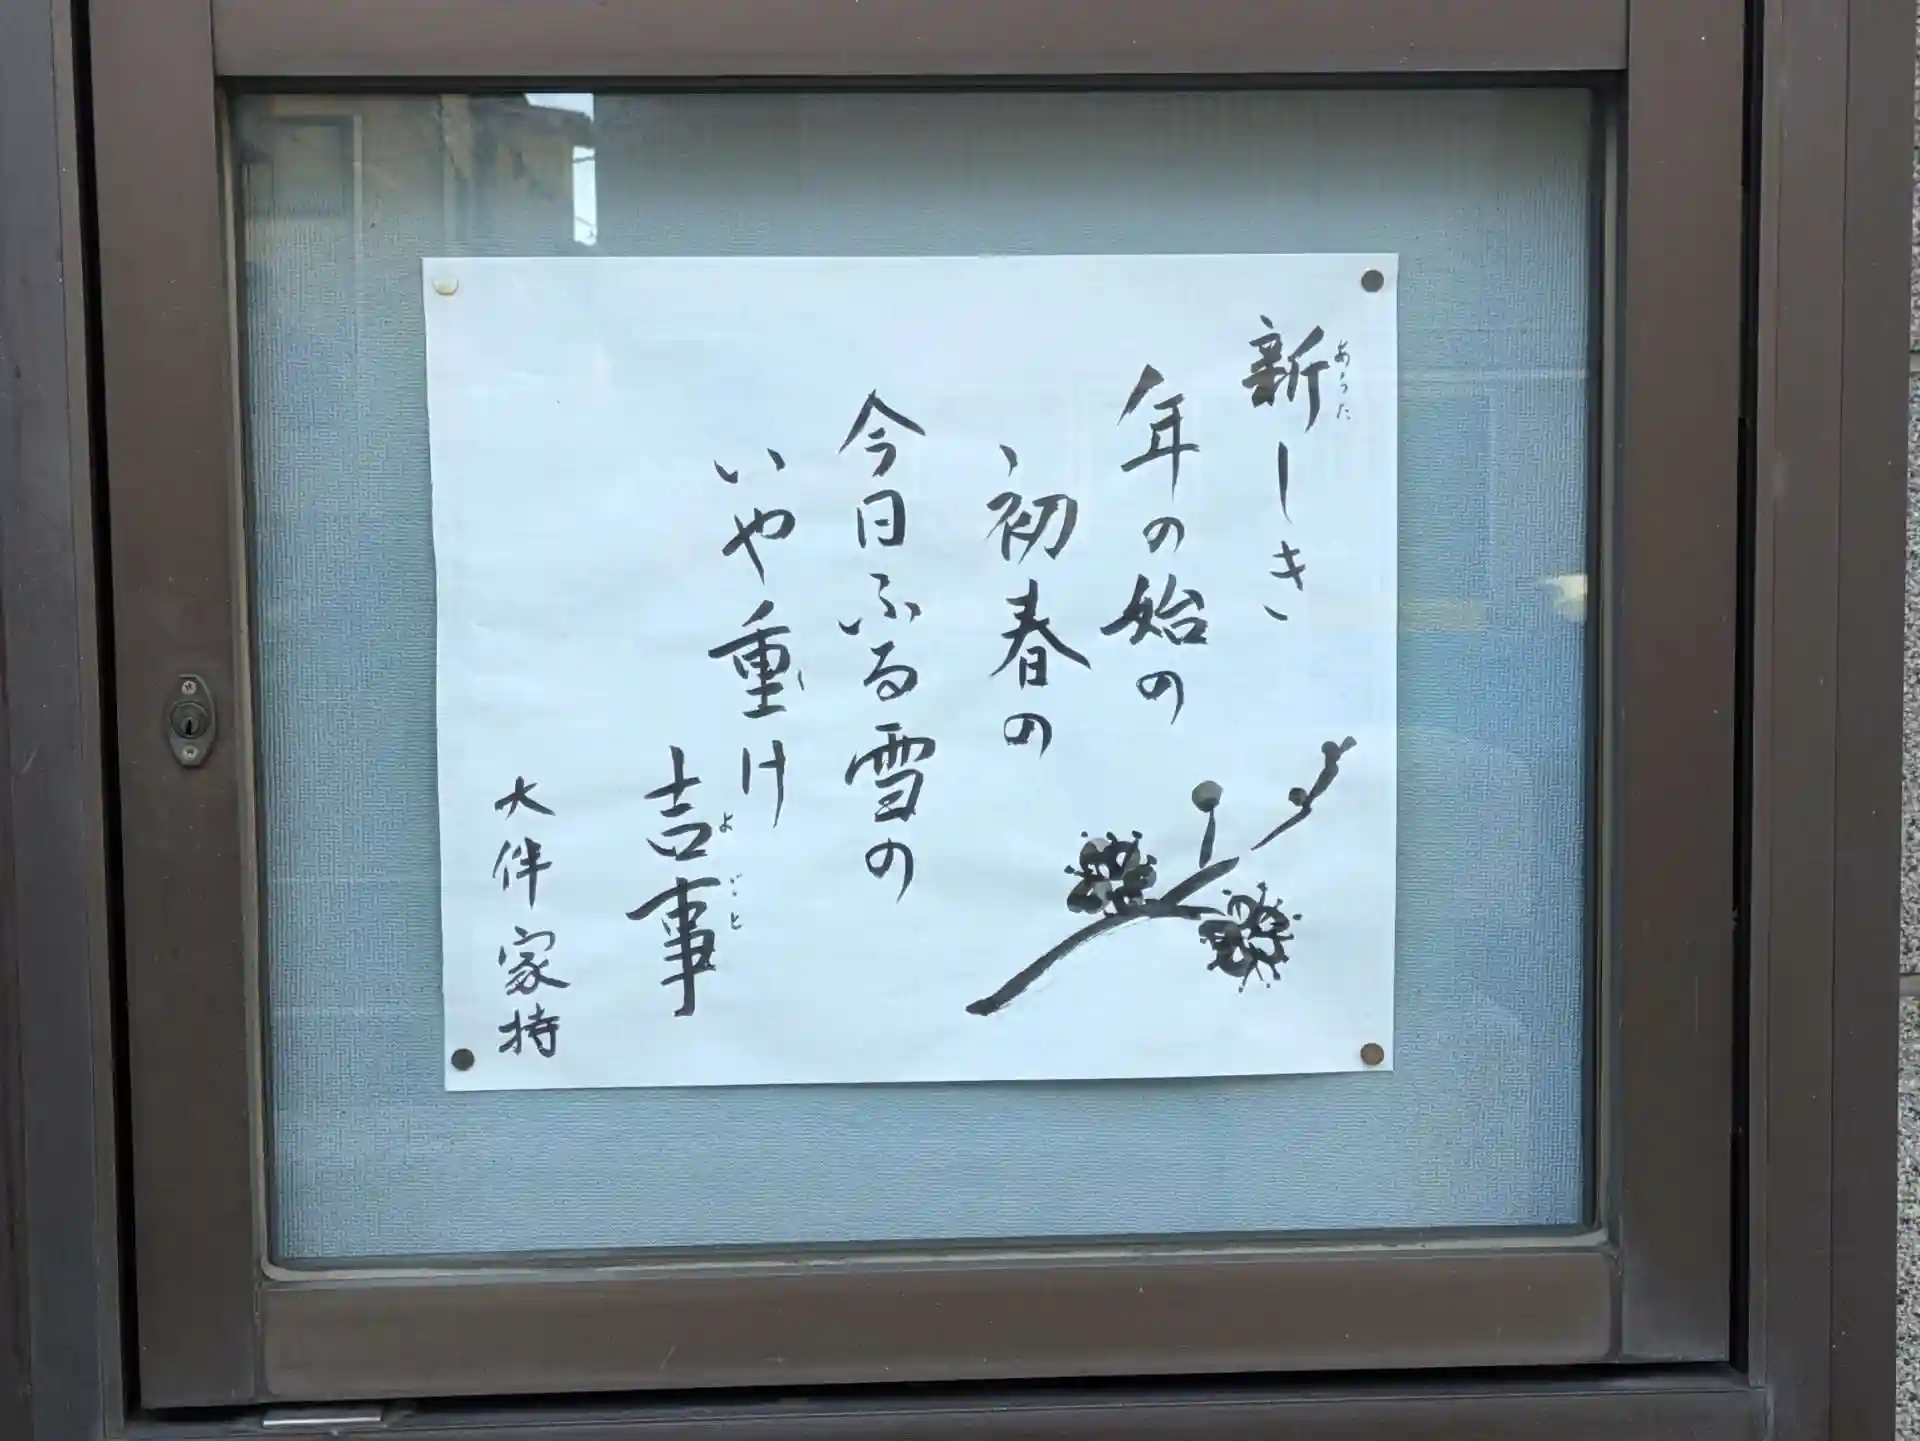 新しき
年の始の
初春の
今日ふる雪の
いや重け
吉事
大伴家持
あらた
し
よごと